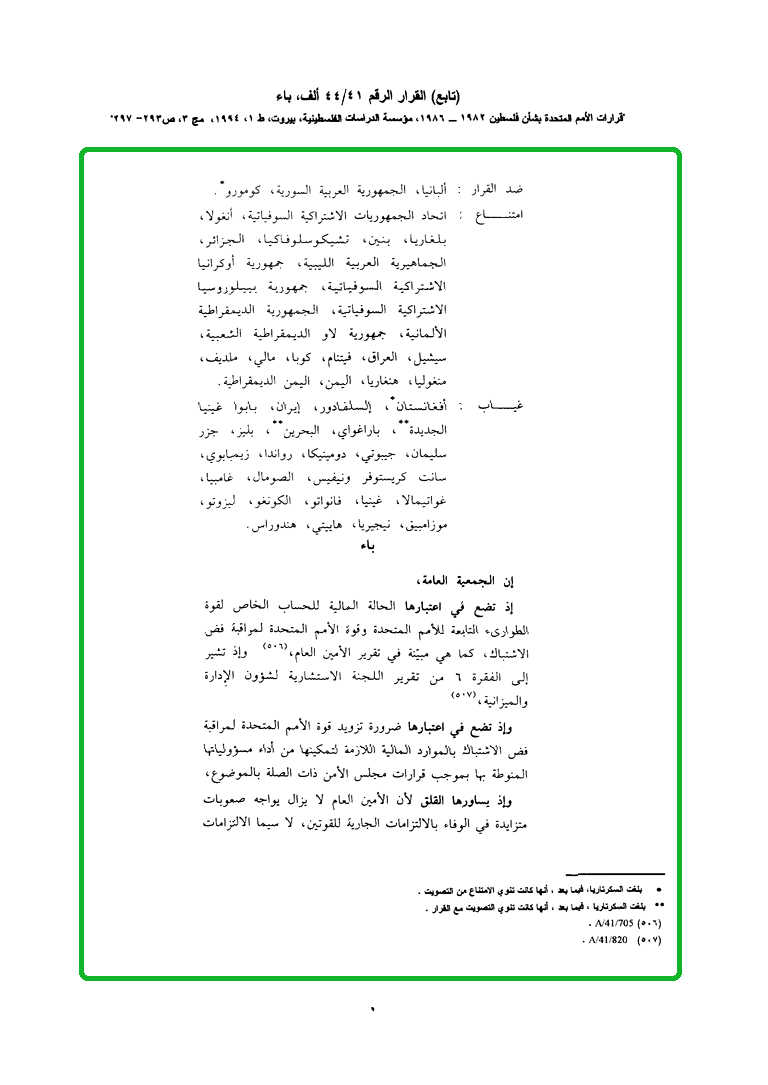 (تابع) القرار الرقم ٤٤/٤١ ألف، باء
"قرارات الأمم المتحدة بشأن فلسطين ١٩٨٢ ــ ١٩٨٦، مؤسسة الدراسات الفلسطينية، بيروت، ط ١، ١٩٩٤، مج ٣، ص٢٩٣- ٢٩٧"
ضد القرار : ألبانيا، الجمهورية العربية السورية، كومورو*.
امتنــــاع : اتحاد الجمهوريات الاشتراكية السوفياتية، أنغولا،
بلغاريا، بنين، تشيكوسلوفاكيا، الجزائر،
الجماهيرية العربية الليبية، جمهورية أوكرانيا
الاشتراكية السوفياتية، جمهورية بييلوروسيا
الاشتراكية السوفياتية، الجمهورية الديمقراطية
الألمانية، جمهورية لاو الديمقراطية الشعبية،
سيشيل، العراق، فيتنام، كوبا، مالي، ملديف،
منغوليا، هنغاريا، اليمن، اليمن الديمقراطية.
غيــــاب : أفغانستان*، إلسلفادور، إيران، بابوا غينيا
الجديدة**، باراغواي، البحرين**، بليز، جزر
سليمان، جيبوتي، دومينيكا، رواندا، زيمبابوي،
سانت كريستوفر ونيفيس، الصومال، غامبيا،
غواتيمالا، غينيا، فانواتو، الكونغو، ليزوتو،
موزامبيق، نيجيريا، هاييتي، هندوراس.
باء
إن الجمعية العامة،
إذ تضع في اعتبارها الحالة المالية للحساب الخاص لقوة
الطوارىء التابعة للأمم المتحدة وقوة الأمم المتحدة لمراقبة فض
الاشتباك، كما هي مبيّنة في تقرير الأمين العام،(٥٠٦) وإذ تشير
إلى الفقرة ٦ من تقرير اللجنة الاستشارية لشؤون الإدارة
والميزانية،(٥٠٧)
وإذ تضع في اعتبارها ضرورة تزويد قوة الأمم المتحدة لمراقبة
فض الاشتباك بالموارد المالية اللازمة لتمكينها من أداء مسؤولياتها
المنوطة بها بموجب قرارات مجلس الأمن ذات الصلة بالموضوع،
وإذ يساورها القلق لأن الأمين العام لا يزال يواجه صعوبات
متزايدة في الوفاء بالالتزامات الجارية للقوتين، لا سيما الالتزامات
* بلغت السكرتاريا، فيما بعد ، أنها كانت تنوي الامتناع من التصويت .
** بلغت السكرتاريا ، فيما بعد ، أنها كانت تنوي التصويت مع القرار .
(٥٠٦) A/41/705 .
(٥٠٧) A/41/820 .
١